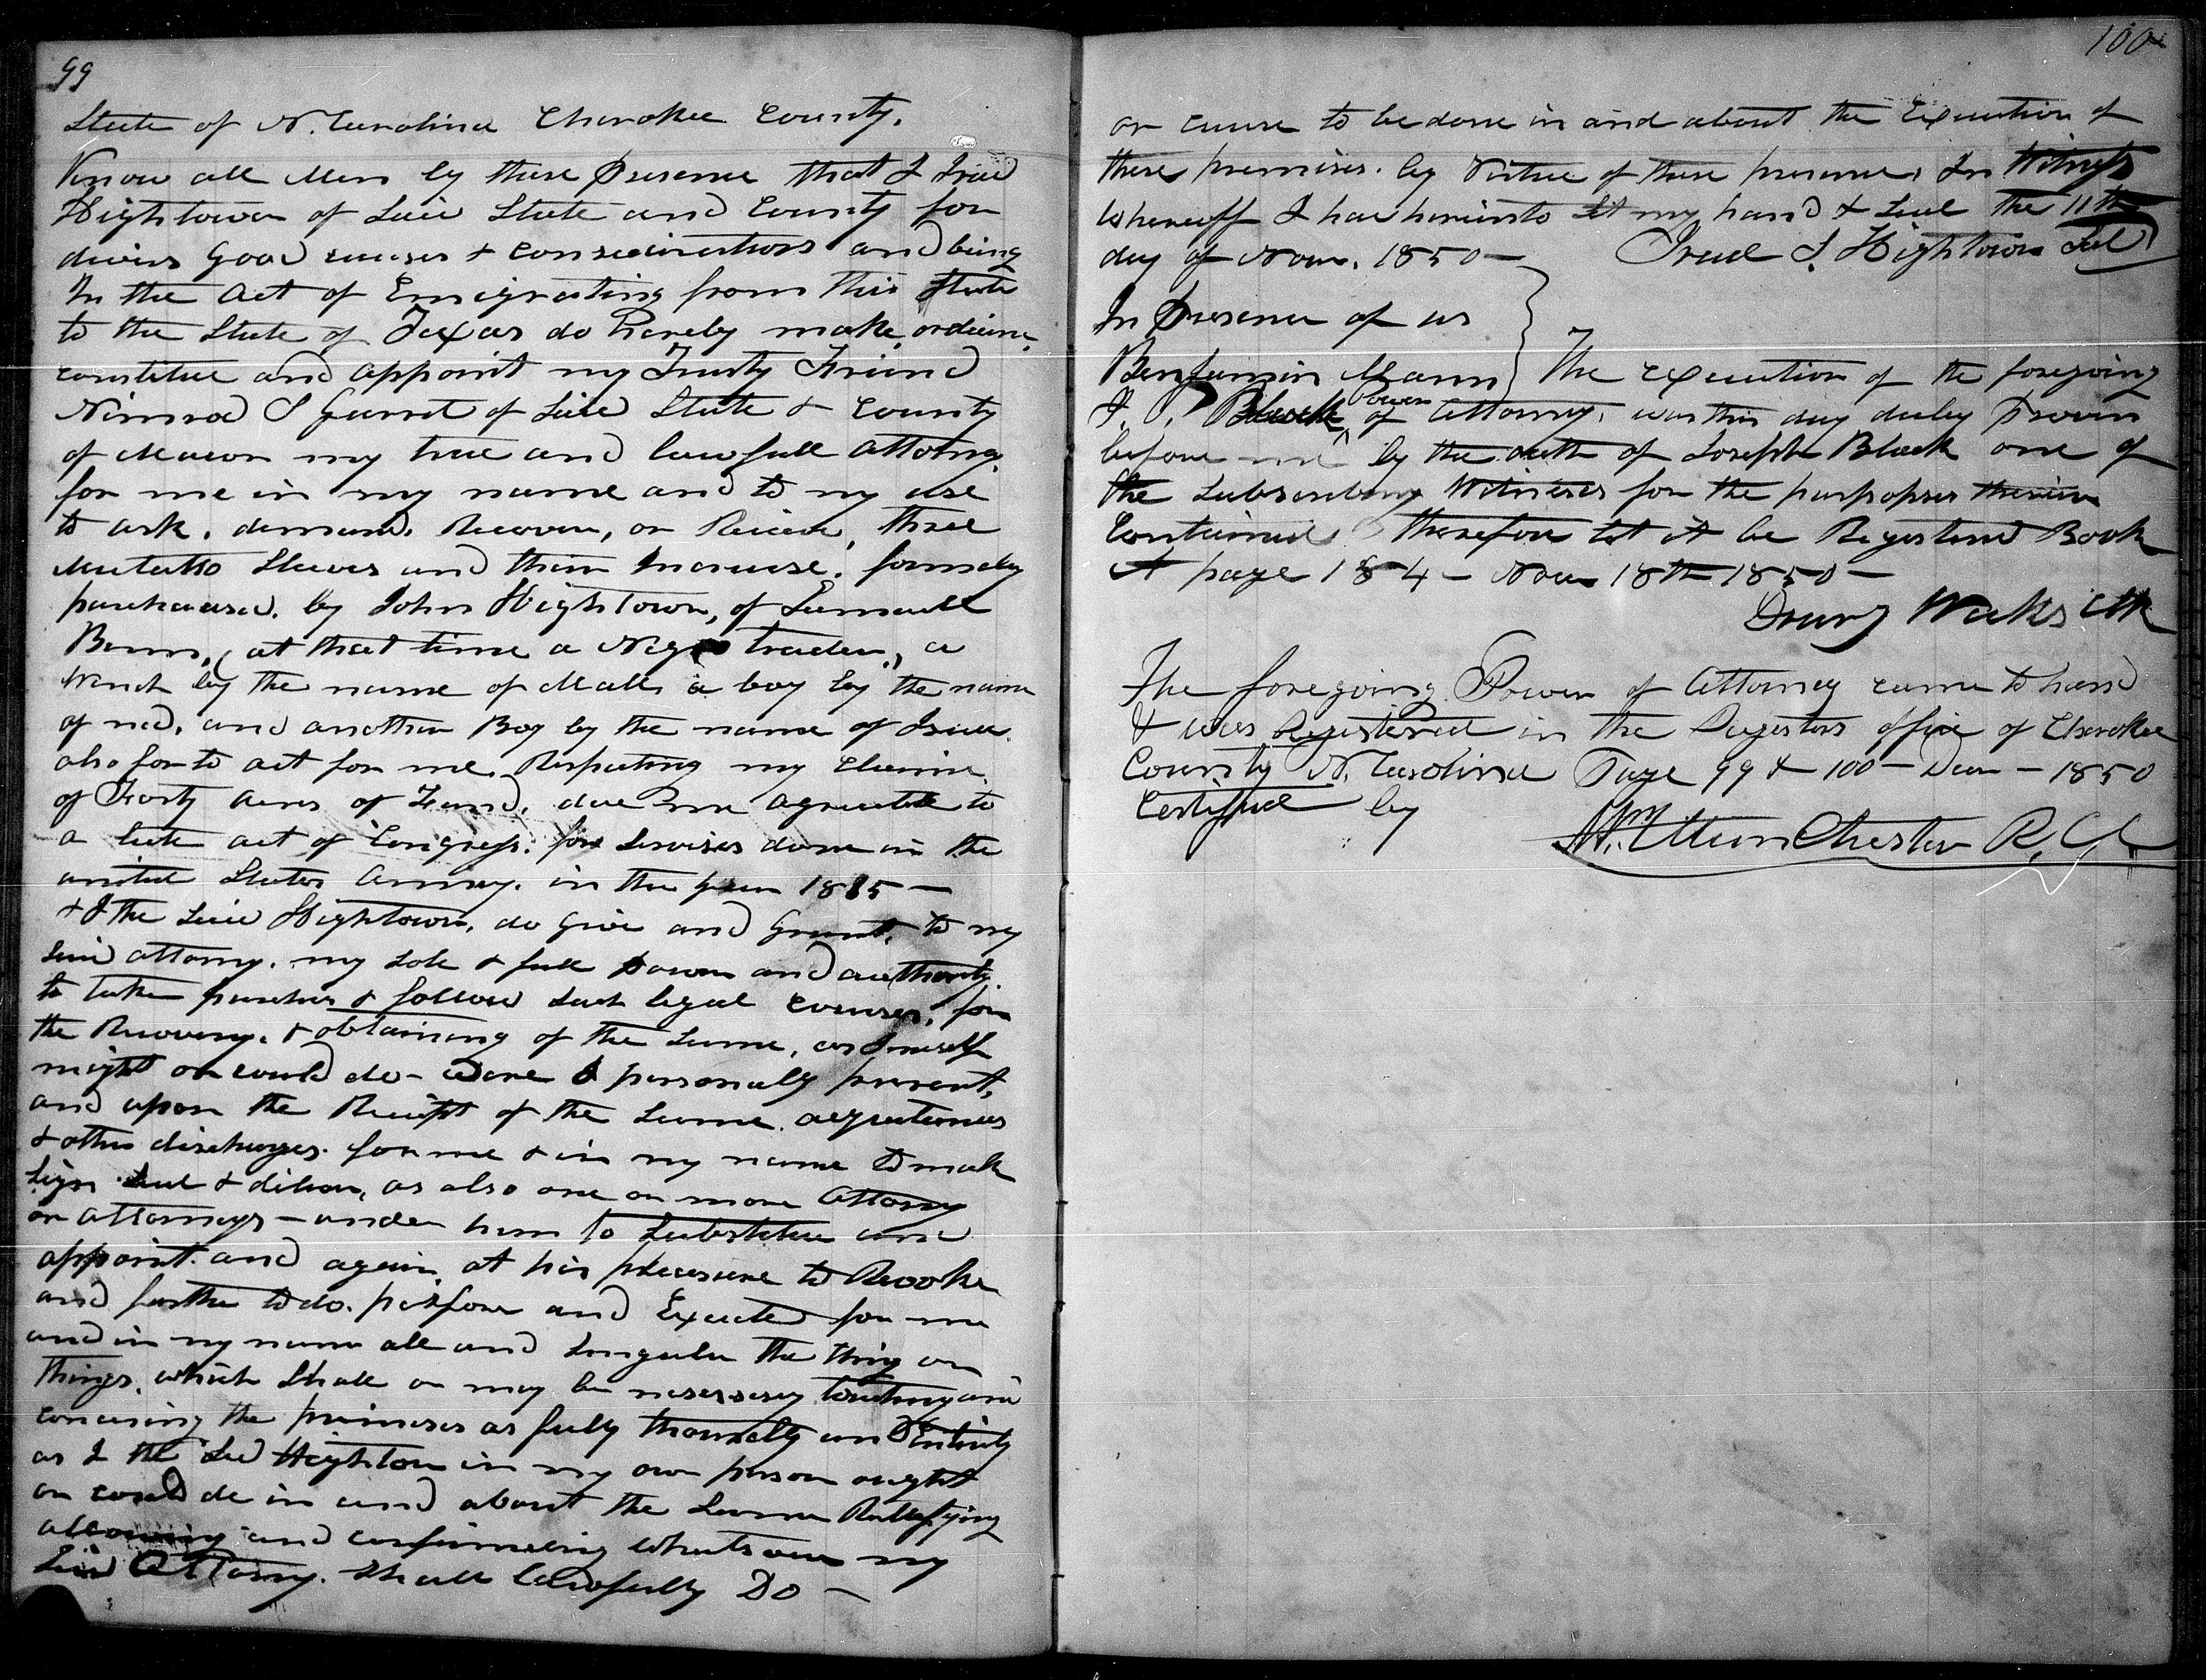 99
State of N. Carolina Cherokee County.
Know all Men by these Presence that I
Hightower of Said State and County for
divers Good causes & considirations and being
In the Act of Emigrating from this State
to the State of Texas do hereby make, ordaine,
constitue and appoint my Trusty Friend
Nimrod S Garret of Said State & County
of Macon my true and lawfull Attorny
for me in my name and to my use
to ask, demand, Recover, or Recieve, three
Mulatto Slaves and their Increase, formerly
purchased, by John Hightower, of Samuell
at that time a Negro trader, a
Wench by the name of a boy by the name
of ned, and another Boy by the name of
also for to act for me Respecting my Claim
of Forty Acres of Land, due me agreeable to
a late act of Congress, for Services done in the
united States Army, in the year 1815 —
& I the Said Hightower, do Give and Grant, to my
Said attorny, my Sole & full Power and authority
to take & follow Such legal courses, for
the Recovery, & obtaining of the Same, as I meself
might or could do - Were I personally present,
and upon the Receipt of the Same
& other discharges for me & in my name to make
Sign Seal & as also one or more Attorny
or Attornys — under him to Substitue and
appoint and again, at his pleasure to Revoke
and further to do. and Execute for me
and in my name all and Singular the thing or
things, which Shall or may be touching and
the as fully and Entirely
as I the Sed in my own person ought
or could do in and about the Same
allowing and my
Said Attorny. Shall lawfully Do —
100
or cause to be done in and about the Execution of
these premises. by Virtue of these In Witness
Whereoff I have hereunto Set my hand & Seal the 11th
day of Novr. 1850 — S. Hightower Seal
In Presence of us
Benjamin Mann } The Execution of the foregoing
J. P. Black Power of Attorny, was this day duly Proven
before me by the oath of Joseph Black one of
the Subscribing Witneses for the therein
Contained therefore let it be Registerd Book
A page 184 — Nov 18th 1850 —
Drury Weeks Clk
The foregoing Power of Attorney came to hand
& was Registered in the Registers office of Cherokee
County N. Carolina Page 99 & 100 — — 1850
Certifyed by
Wm R. C.